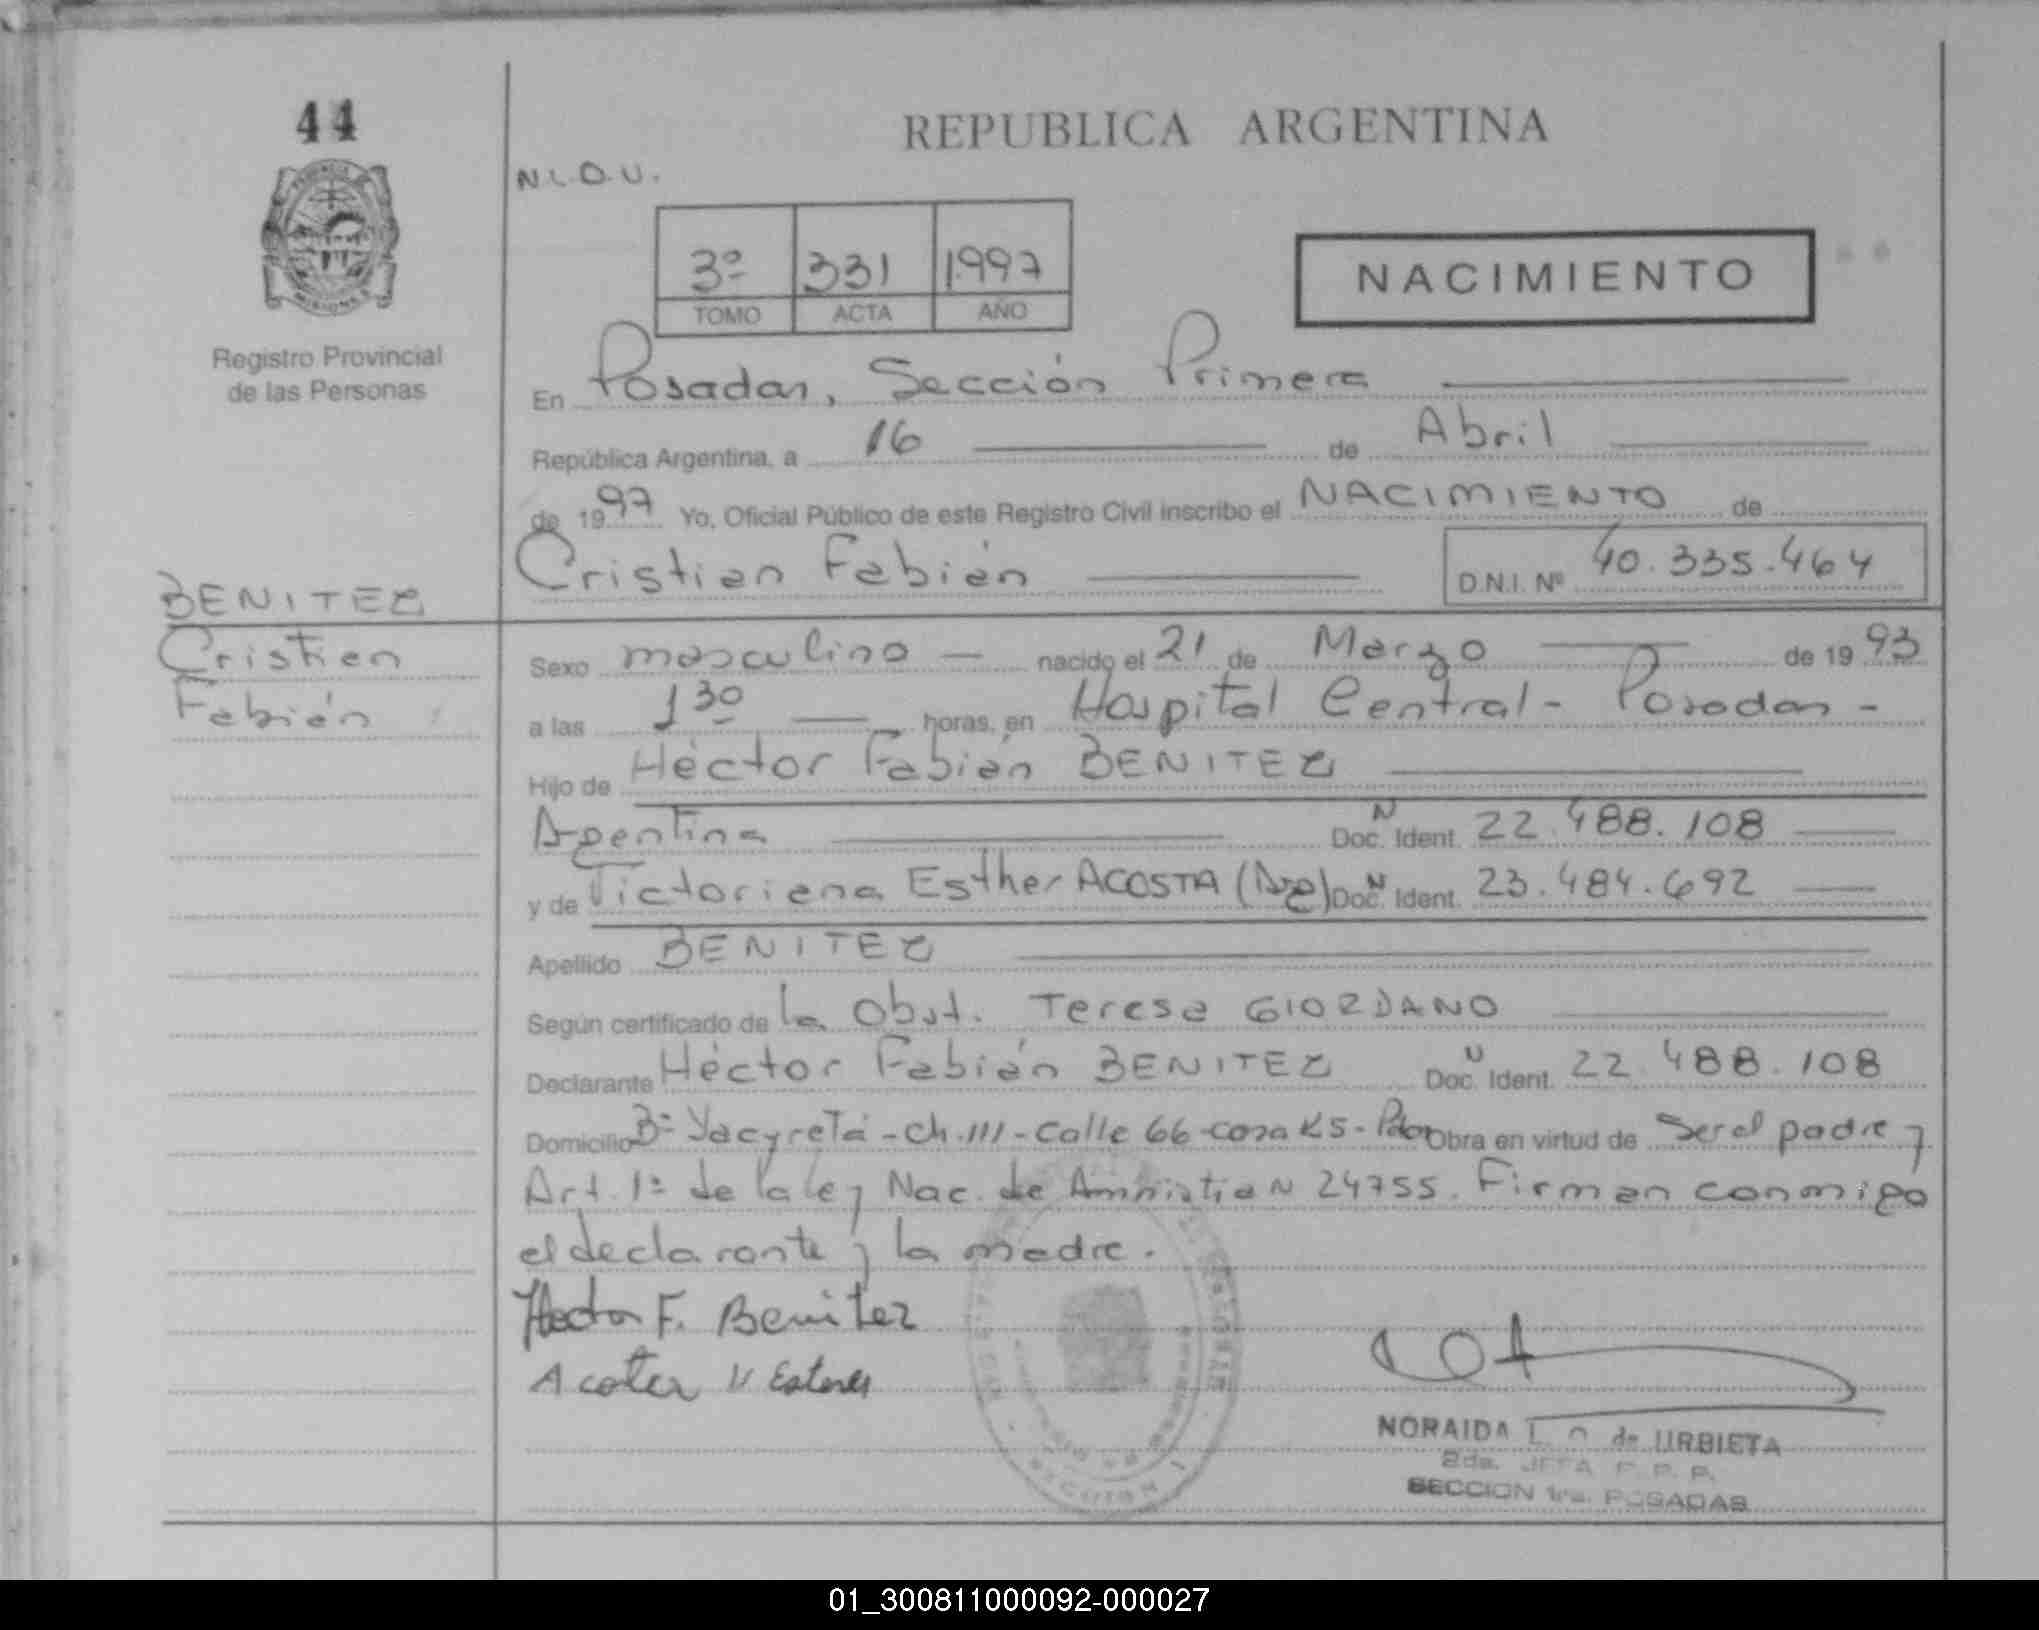 44
REPUBLICA ARGENTINA
N.L.O.U.
3º 331 1997
TOMO ACTA AÑO
NACIMIENTO
MISIONES
Registro Provincial
de las Personas
En Posadas, Sección Primera
República Argentina, a 16 de Abril
de 1997 Yo, Oficial Público de este Registro Civil inscribo el NACIMIENTO de
Cristian Fabián D.N.I. Nº 40.335.464
BENITEZ
Cristian
Fabián
Sexo masculino nacido el 21 de Marzo de 1993
a las 1 30 horas, en Hospital Central - Posadas -
Hijo de Héctor Fabián BENITEZ
Argentina Doc. N Ident. 22.488.108
y de Victoriana Esther ACOSTA (Arg) Doc. N Ident. 23.484.692
Apellido BENITEZ
Según certificado de la Obst. Teresa GIORDANO
Declarante Héctor Fabián BENITEZ Doc. N Ident. 22.488.108
Domicilio Bº Yacyretá - Ch. 111 - Calle 66 - casa K5 - Pdas Obra en virtud de Ser el padre y
Art. 1º de la ley Nac. de Amnistia N 24755. Firman conmigo
el declarante y la madre.
Hector F. Benitez
NORAIDA L. de URBIETA
2da. JEFA R. P. P.
SECCION 1ra. POSADAS
01_300811000092-000027